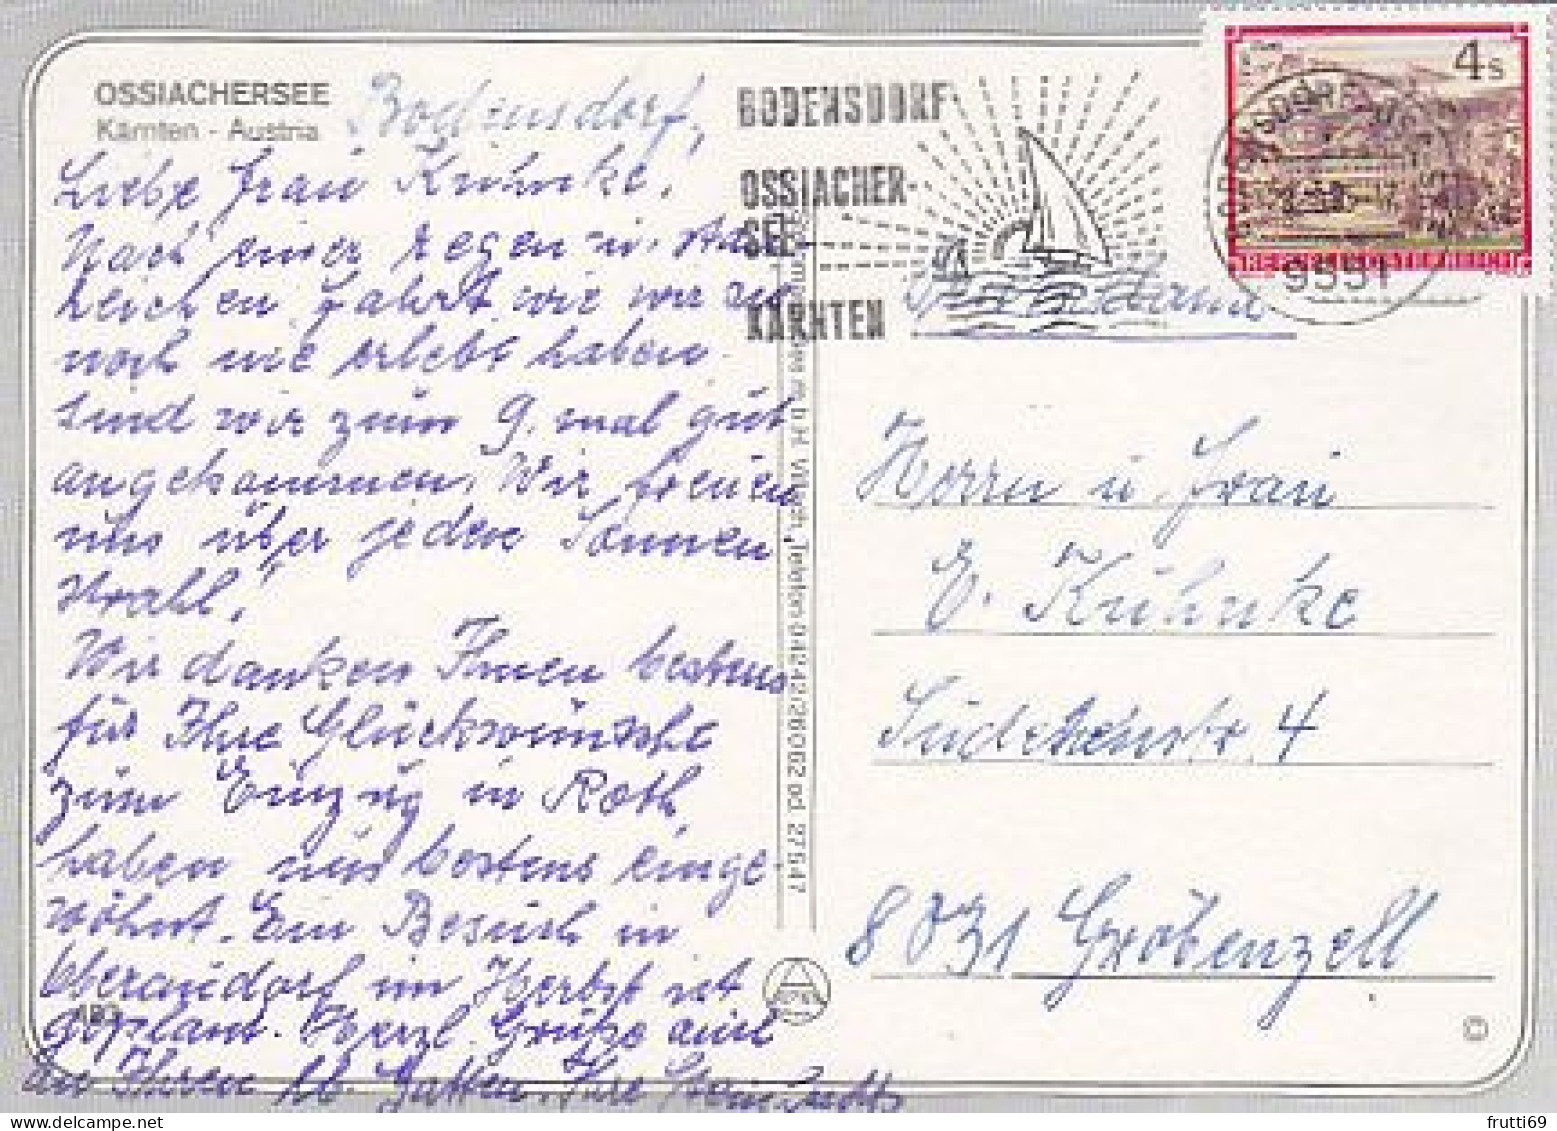 OSSIACHERSEE
Kärnten - Austria
Bodensdorf,
Liebe Frau Kühnke,
Nach einer regen u. stau
reichen Fahrt wie wir zu
noch nie erlebt haben
sind wir zum 9. mal gut
angekommen. Wir freuen
uns über jeden Sonnen
strahl!
Wir danken Ihnen bestens
für Ihre Glückwünsche
zum Einzug in Roth,
haben uns bestens einge-
wöhnt. Ein Besuch in
im Herbst ist
geplant. Herzl. Grüße auch
an Ihren lb. Gatten. Ihre
BODENSDORF
OSSIACHER-
SEE
KÄRNTEN
4 S
REPUBLIK ÖSTERREICH
9551
m.b.H. Villach, Telefon 04242/26062 od. 27547
Herrn u. Frau
E. Kühnke
Sudetenstr. 4
8031 Gröbenzell
©
frutti69